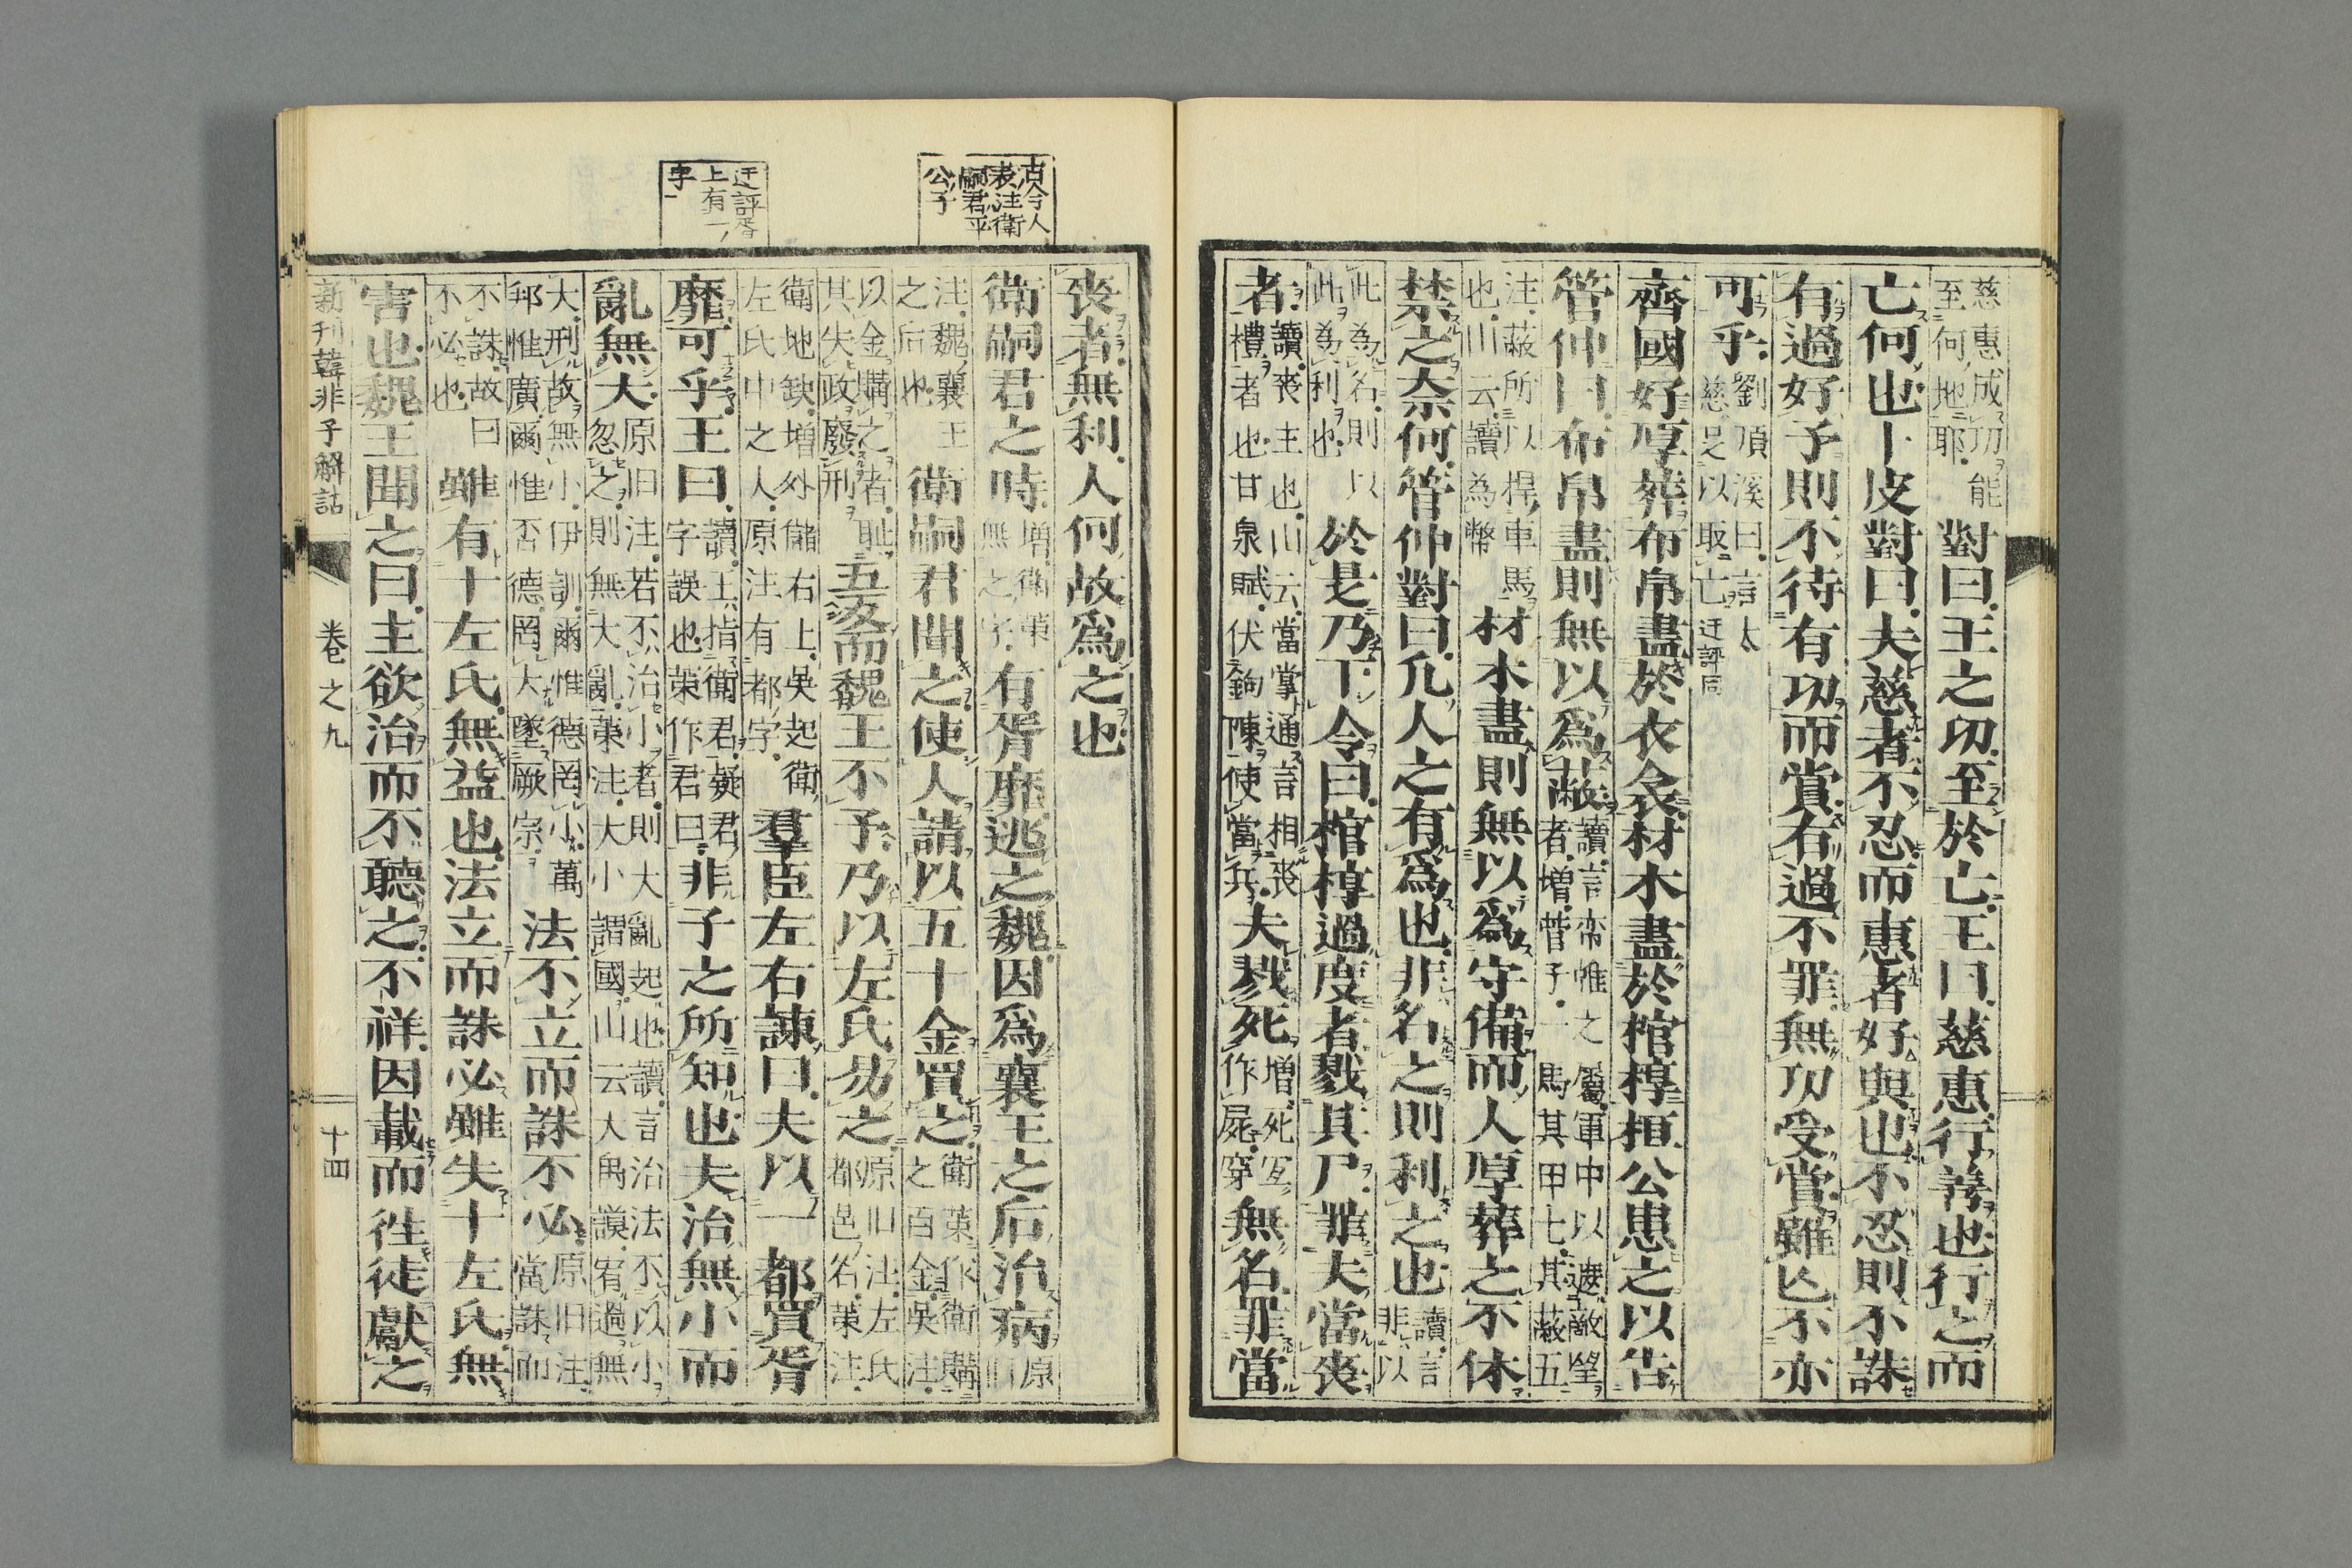 慈惠成功能
至何地耶
對曰王之功至於亡王曰慈惠行善也行之而
亡何也卜皮對曰夫慈者不忍而惠者好與也不忍則不誅
有過好予則不待有功而賞有過不罪無功受賞雖亡不亦
可乎
劉須溪曰言太
慈足以取亡迂評同
齊國好厚葬布帛盡於衣衾材木盡於棺椁桓公患之以告
管仲曰布帛盡則無以爲蔽
讀言帘帷之屬軍中以遮敵望
者增管子一馬其甲七其蔽五
注蔽所以捍車馬
也山云讀為幣
材木盡則無以爲守備而人厚葬之不休
禁之奈何管仲對曰凡人之有爲也非名之則利之也
讀言
非以
此為名則以
此為利也
於是乃下令曰棺椁過度者戮其尸罪夫當喪
者
讀喪主也山云當掌通言相喪
禮者也甘泉賦伏鉤陳使當兵
夫戮死
增死亙
作屍穿
無名罪當
喪者無利人何故爲之也
衛嗣君之時
增衛策
無之字
有胥靡逃之魏因爲襄王之后治病
原旧
注魏襄王
之后也
衛嗣君聞之使人請以五十金買之
衛策作衛購
之百金吳注
以金購之者恥
其失政廢刑
五返而魏王不予乃以左氏易之
原旧注左氏
都邑名策注
衛地缺増外儲右上吳起衛
左氏中之人原注有都字
羣臣左右諫曰夫以一都買胥
靡可乎王曰
讀王指衛君疑君
字誤也策作君曰
非子之所知也夫治無小而
亂無大
原旧注若不治小者則大亂起也讀言治法不以小
忽之則無大亂策注大小謂國山云大禹謨宥過無
大刑故無小伊訓爾惟德罔小萬
邦惟廣爾惟否德罔大墜厥宗
法不立而誅不必
原旧注
當誅而
不誅故曰
不必也
雖有十左氏無益也法立而誅必雖失十左氏無
害也魏王聞之曰主欲治而不聽之不祥因載而徃徒獻之
古今人
表注衛
嗣君平
公子
迂評胥
上有一
字
新刊韓非子解詁
卷之九
十四